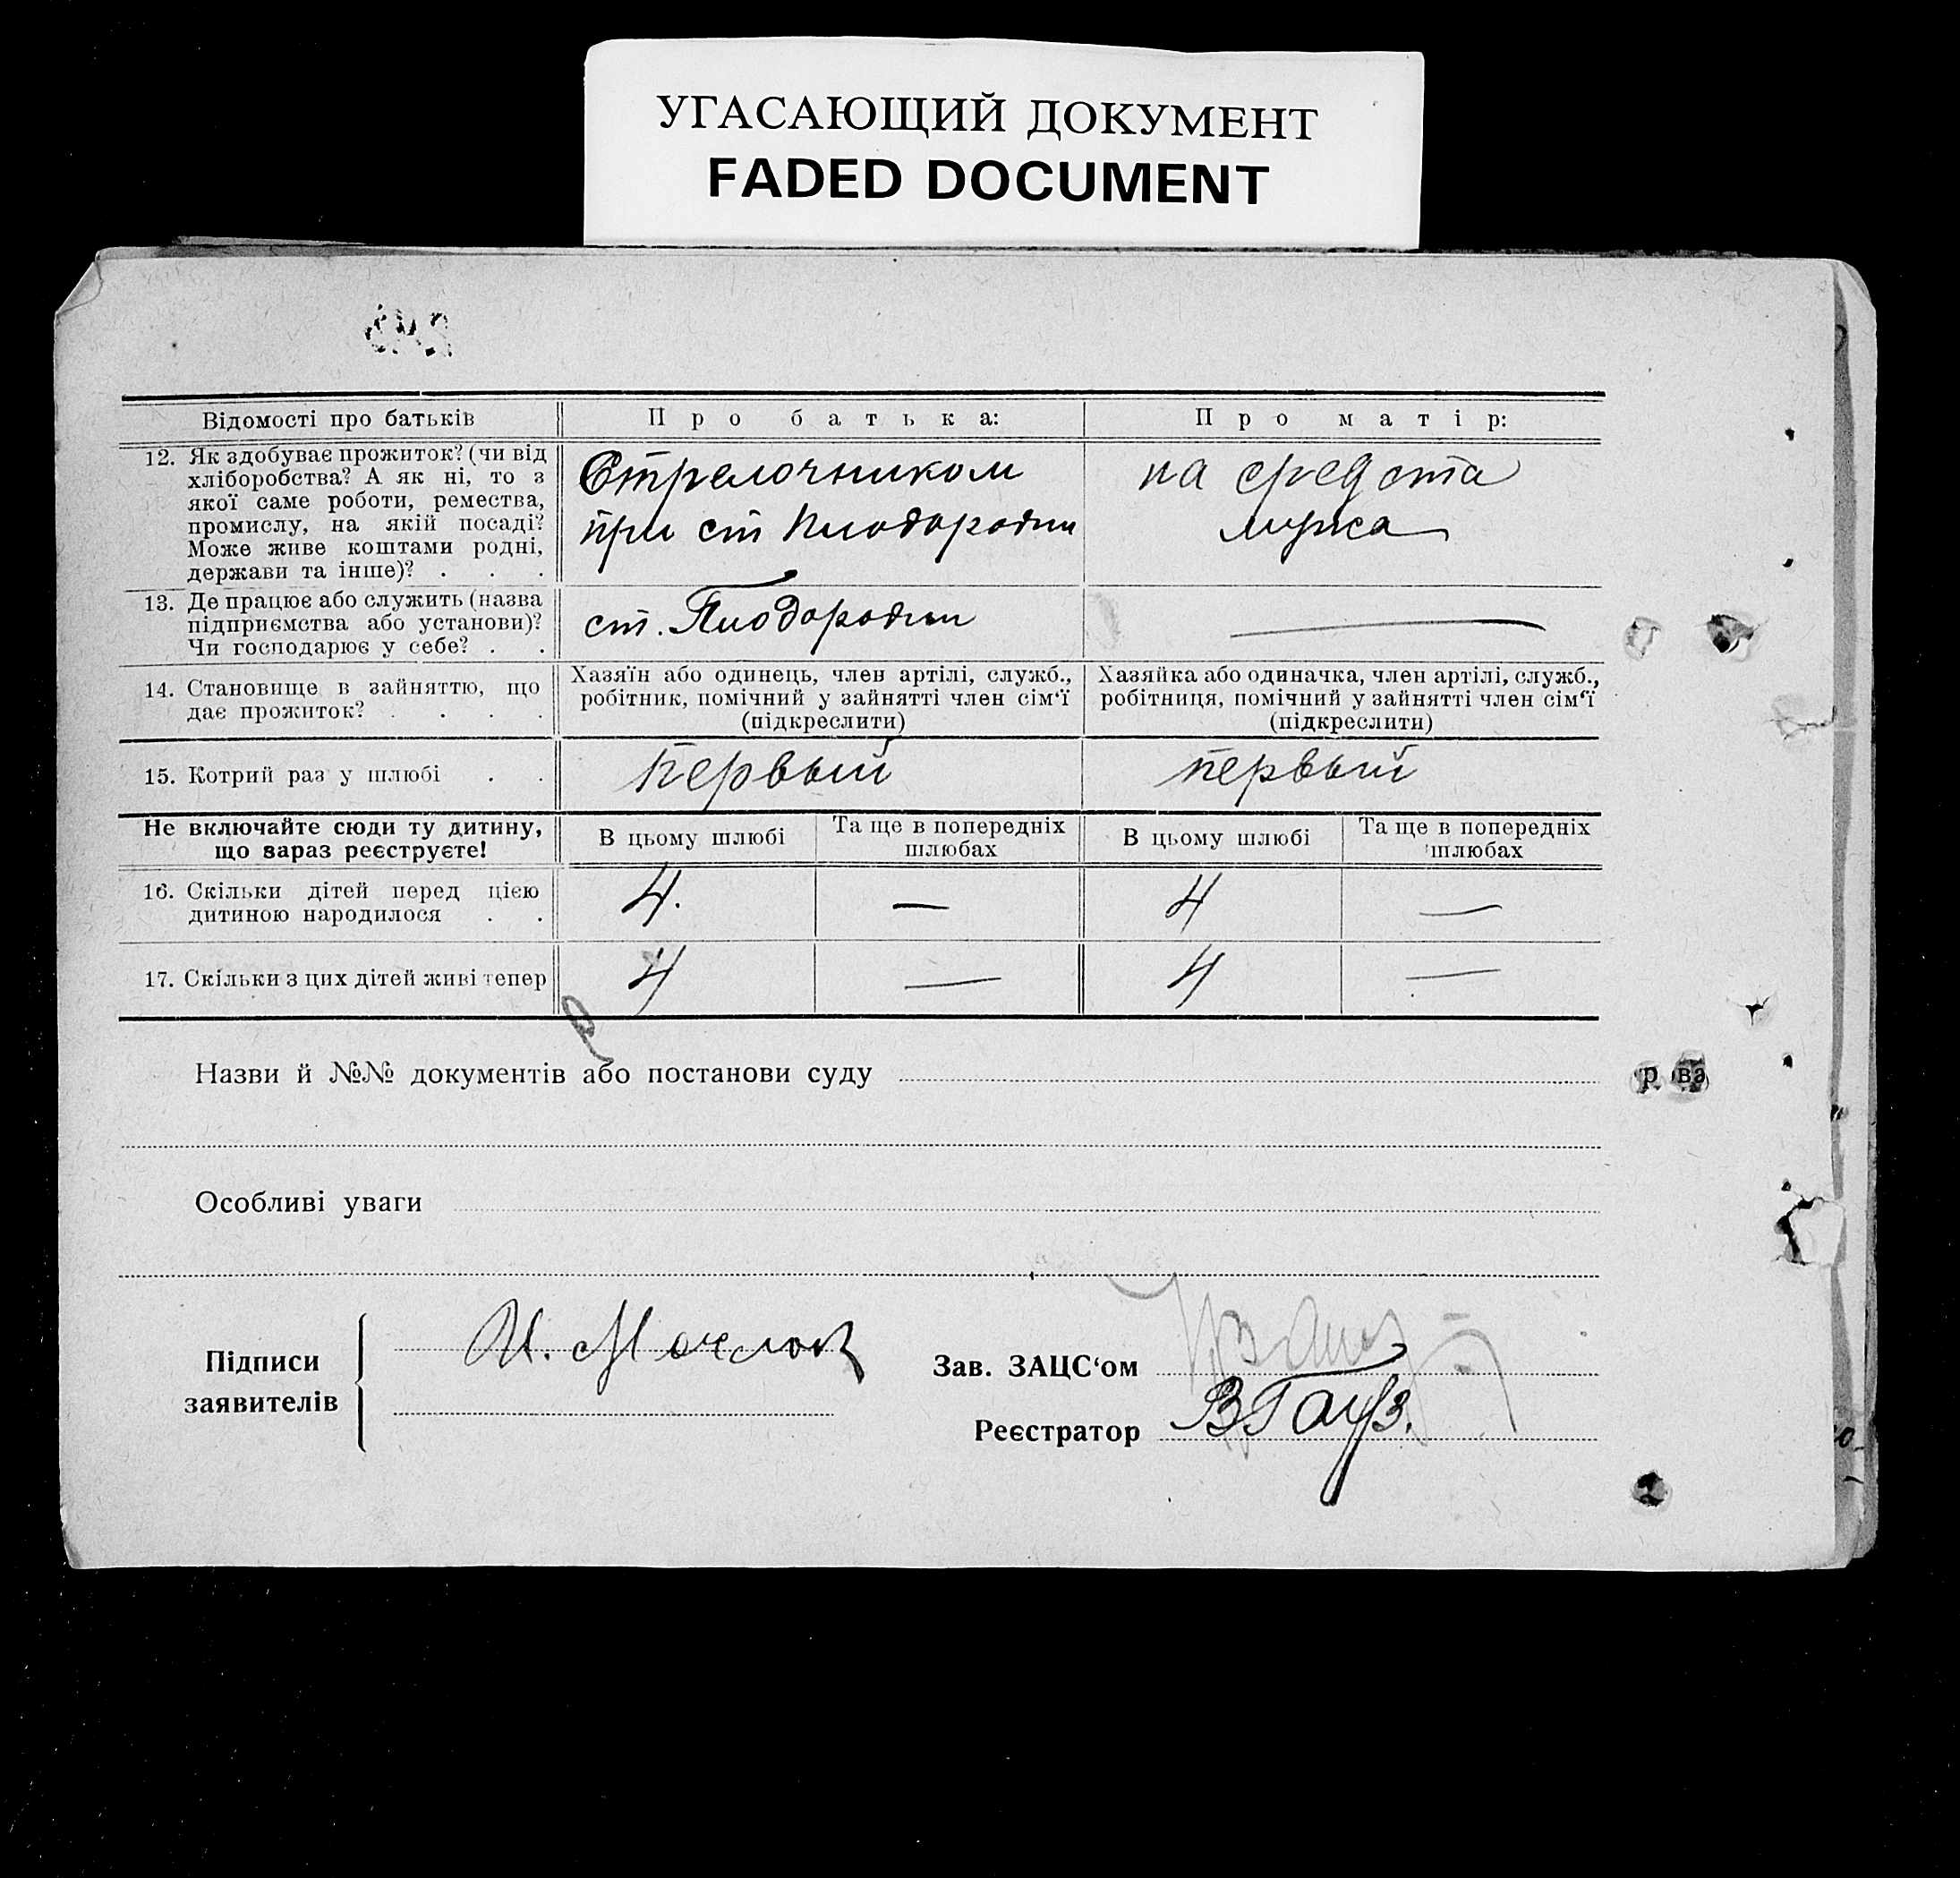 УГАСАЮЩИЙ ДОКУМЕНТ
FADED DOCUMENT
Відомості про батьків
Про батька:
Про матір:
12. Як здобуває прожиток? (чи від
хліборобства? А як ні, то з
якої саме роботи, ремества,
промислу, на якій посаді?
Може живе коштами родні,
держави та інше)? . . .
Стрелочником
при ст Плодородии
на средста
мужа
13. Де працює або служить (назва
підприємства або установи)?
Чи господарює у себе? . .
ст. Плодородии
14. Становище в зайняттю, що
дає прожиток? . . . .
Хазяїн або одинець, член артілі, служб.,
робітник, помічний у зайнятті член сім‘ї
(підкреслити)
Хазяйка або одиначка, член артілі, служб.,
робітниця, помічний у зайнятті член сім‘ї
(підкреслити)
15. Котрий раз у шлюбі . .
первый
первый
Не включайте сюди ту дитину,
що зараз реєструєте!
В цьому шлюбі
Та ще в попередніх
шлюбах
В цьому шлюбі
Та ще в попередніх
шлюбах
16. Скільки дітей перед цією
дитиною народилося . .
4. — 4 —
17. Скільки з цих дітей живі тепер
4 — 4 —
Назви й №№ документів або постанови суду
Особливі уваги
Підписи
заявителів
И.
Зав. ЗАЦС‘ом
Реєстратор
ВГауз.